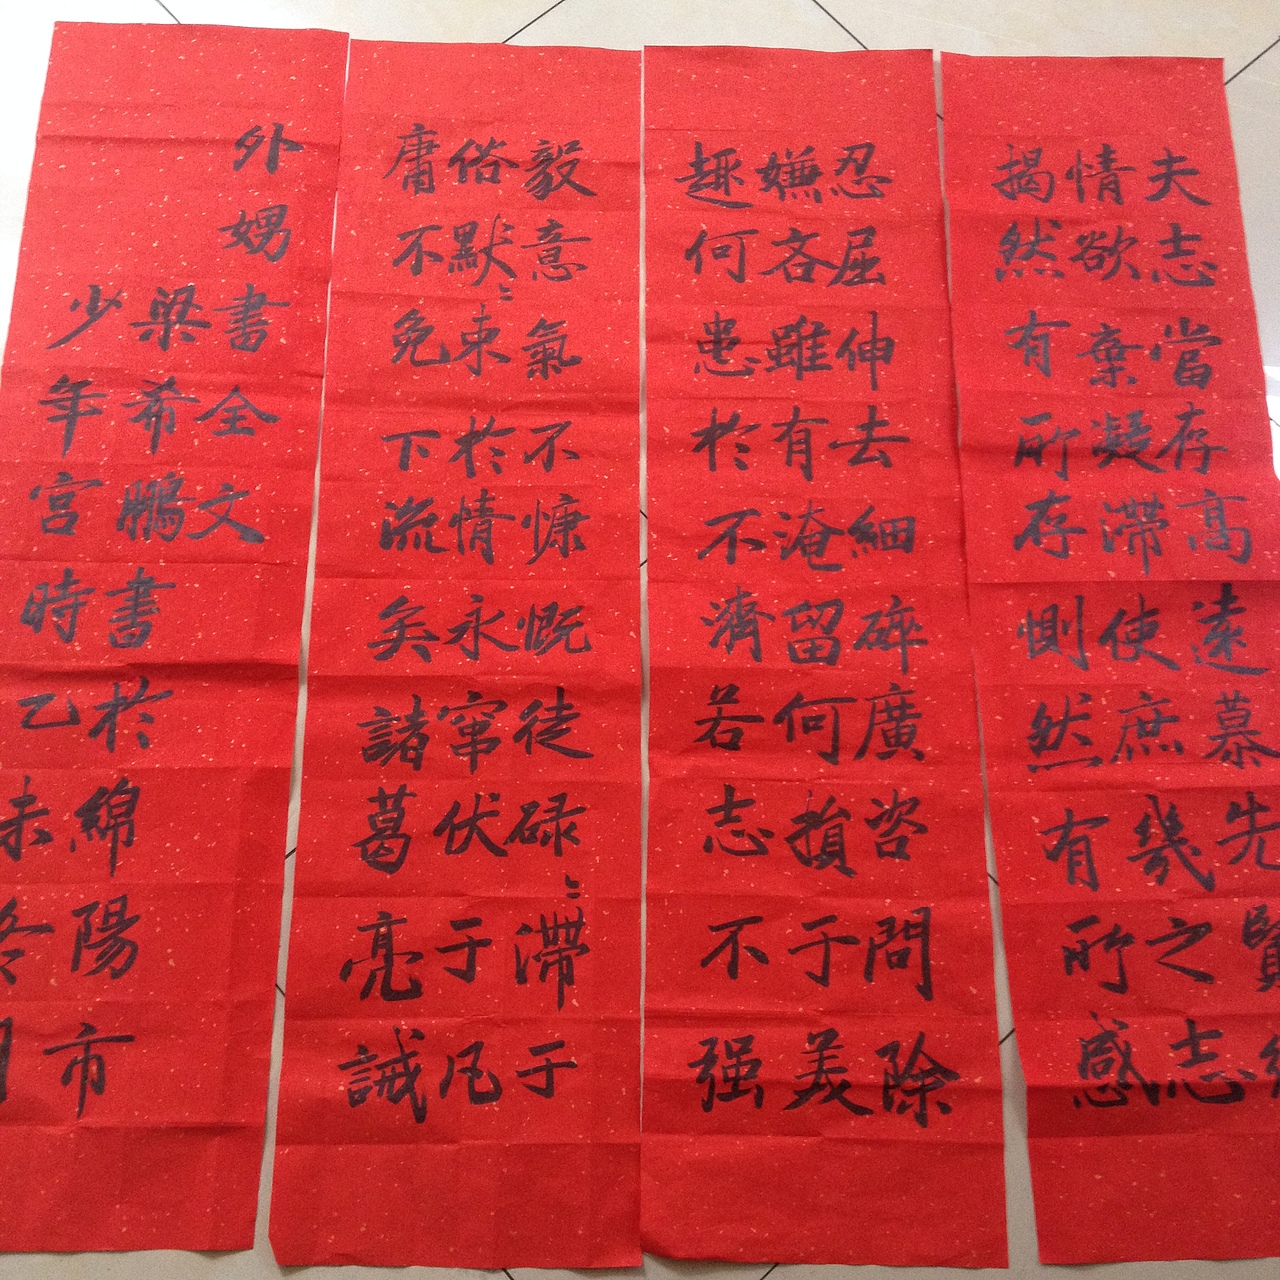 夫志當存高遠慕先賢
情欲棄凝滯使庶幾之志
揭然有所存惻然有所感
忍屈伸去細碎廣咨問除
嫌吝雖有淹留何損于美
趣何患於不濟若志不强
毅意氣不慷慨徒碌〻滯于
俗默〻束於情永竄伏于凡
庸不免下流矣諸葛亮誡
外娚書全文
梁希鵬書於綿陽市
少年宮時乙未冬月